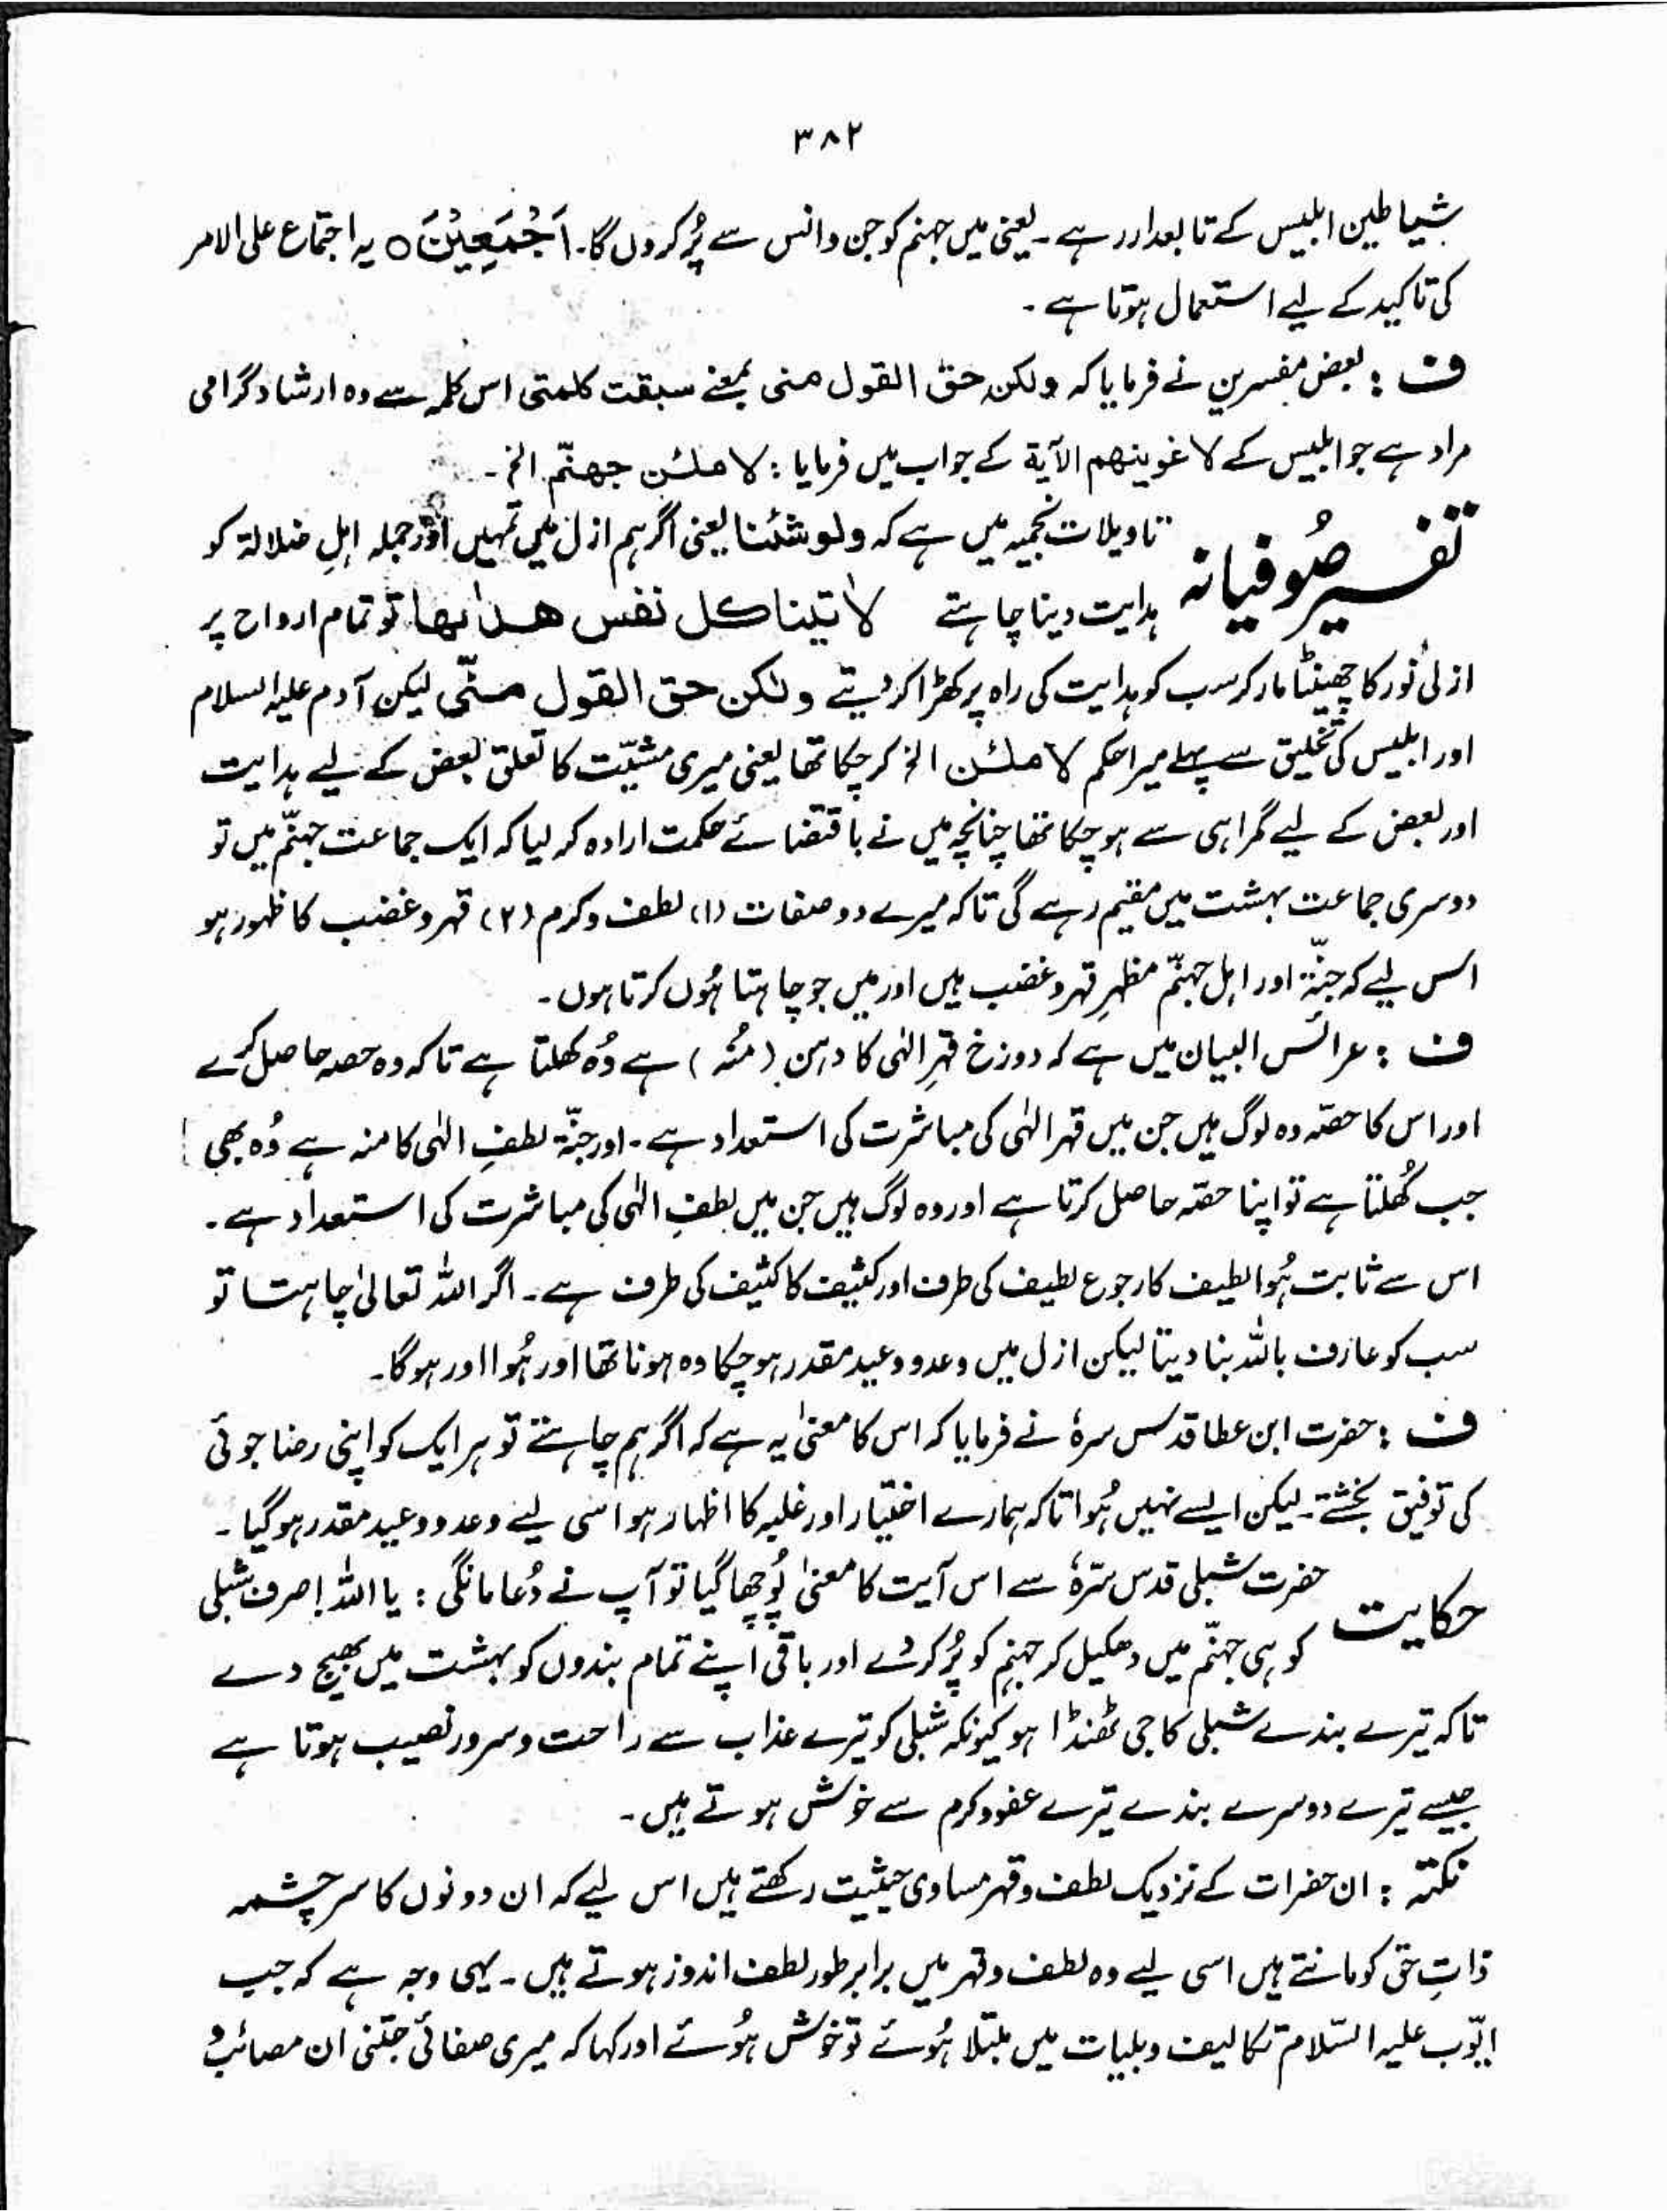 ۳۸۲
شیاطین ابلیس کے تابعدار رہے ۔ یعنی میں جہنم کو جن وانس سے پُر کروں گا۔ اَجْمَعِیْنَ ○ یہ اجتماع علی الامر
کی تاکید کے لیے استعمال ہوتا ہے ۔
ف : بعض مفسرین نے فرمایا کہ ولکن حق القول منی بمعنے سبقت کلمتی اس کلمہ سے وہ ارشاد گرامی
مراد ہے جو ابلیس کے لاغوینھم الآیۃ کے جواب میں فرمایا : لاملئن جھنّم الخ ۔
تفسیر صُوفیانہ تاویلات نجمیہ میں ہے کہ ولوشئنا یعنی اگر ہم ازل میں تمہیں اور جملہ اہلِ ضلالۃ کو
ہدایت دینا چاہتے لاٰتینا کل نفس ھداٰھا تو تمام ارواح پر
ازلی نُور کا چھینٹا مار کر سب کو ہدایت کی راہ پر کھڑا کر دیتے ولٰکن حق القول منّی لیکن آدم علیہ السلام
اور ابلیس کی تخلیق سے پہلے میرا حکم لاملئن الخ کر چکا تھا یعنی میری مشیّت کا تعلق بعض کے لیے ہدایت
اور بعض کے لیے گمراہی سے ہو چکا تھا چنانچہ میں نے باقتضائے حکمت ارادہ کر لیا کہ ایک جماعت جہنّم میں تو
دوسری جماعت بہشت میں مقیم رہے گی تاکہ میرے دو صفات (۱) لطف وکرم (۲) قہر وغضب کا ظہور ہو
اس لیے کہ جنّۃ اور اہل جہنّم مظہرِ قہر وغضب ہیں اور میں جو چاہتا ہُوں کرتا ہوں ۔
ف : عرائس البیان میں ہے کہ دوزخ قہرِ الٰہی کا دہن (مُنہ) ہے وُہ کھلتا ہے تاکہ وہ حصہ حاصل کرے
اور اس کا حصّہ وہ لوگ ہیں جن میں قہر الٰہی کی مباشرت کی استعداد ہے ۔ اور جنّۃ لطفِ الٰہی کا منہ ہے وُہ بھی
جب کُھلتا ہے تو اپنا حصّہ حاصل کرتا ہے اور وہ لوگ ہیں جن میں لطفِ الٰہی کی مباشرت کی استعداد ہے ۔
اس سے ثابت ہُوا لطیف کا رجوع لطیف کی طرف اور کثیف کا کثیف کی طرف ہے ۔ اگر اللہ تعالیٰ چاہتا تو
سب کو عارف باللہ بنا دیتا لیکن ازل میں وعد و وعید مقدر ہو چکا وہ ہونا تھا اور ہُوا اور ہوگا۔
ف : حضرت ابن عطا قدس سرہٗ نے فرمایا کہ اس کا معنیٰ یہ ہے کہ اگر ہم چاہتے تو ہر ایک کو اپنی رضا جوئی
کی توفیق بخشتے ۔ لیکن ایسے نہیں ہُوا تاکہ ہمارے اختیار اور غلبہ کا اظہار ہو اسی لیے وعد و وعید مقدر ہوگیا ۔
حکایت حضرت شبلی قدس سرّہٗ سے اس آیت کا معنیٰ پُوچھا گیا تو آپ نے دُعا مانگی : یا اللہ ! صرف شبلی
کو ہی جہنّم میں دھکیل کر جہنم کو پُر کر دے اور باقی اپنے تمام بندوں کو بہشت میں بھیج دے
تاکہ تیرے بندے شبلی کا جی ٹھنڈا ہو کیونکہ شبلی کو تیرے عذاب سے راحت وسرور نصیب ہوتا ہے
جیسے تیرے دوسرے بندے تیرے عفو وکرم سے خوش ہوتے ہیں ۔
نکتہ : ان حضرات کے نزدیک لطف وقہر مساوی حیثیت رکھتے ہیں اس لیے کہ ان دونوں کا سرچشمہ
ذاتِ حق کو مانتے ہیں اسی لیے وہ لطف وقہر میں برابر طور لطف اندوز ہوتے ہیں ۔ یہی وجہ ہے کہ جب
ایّوب علیہ السّلام تکالیف وبلیات میں مبتلا ہُوئے تو خوش ہُوئے اور کہا کہ میری صفائی جتنی ان مصائب و